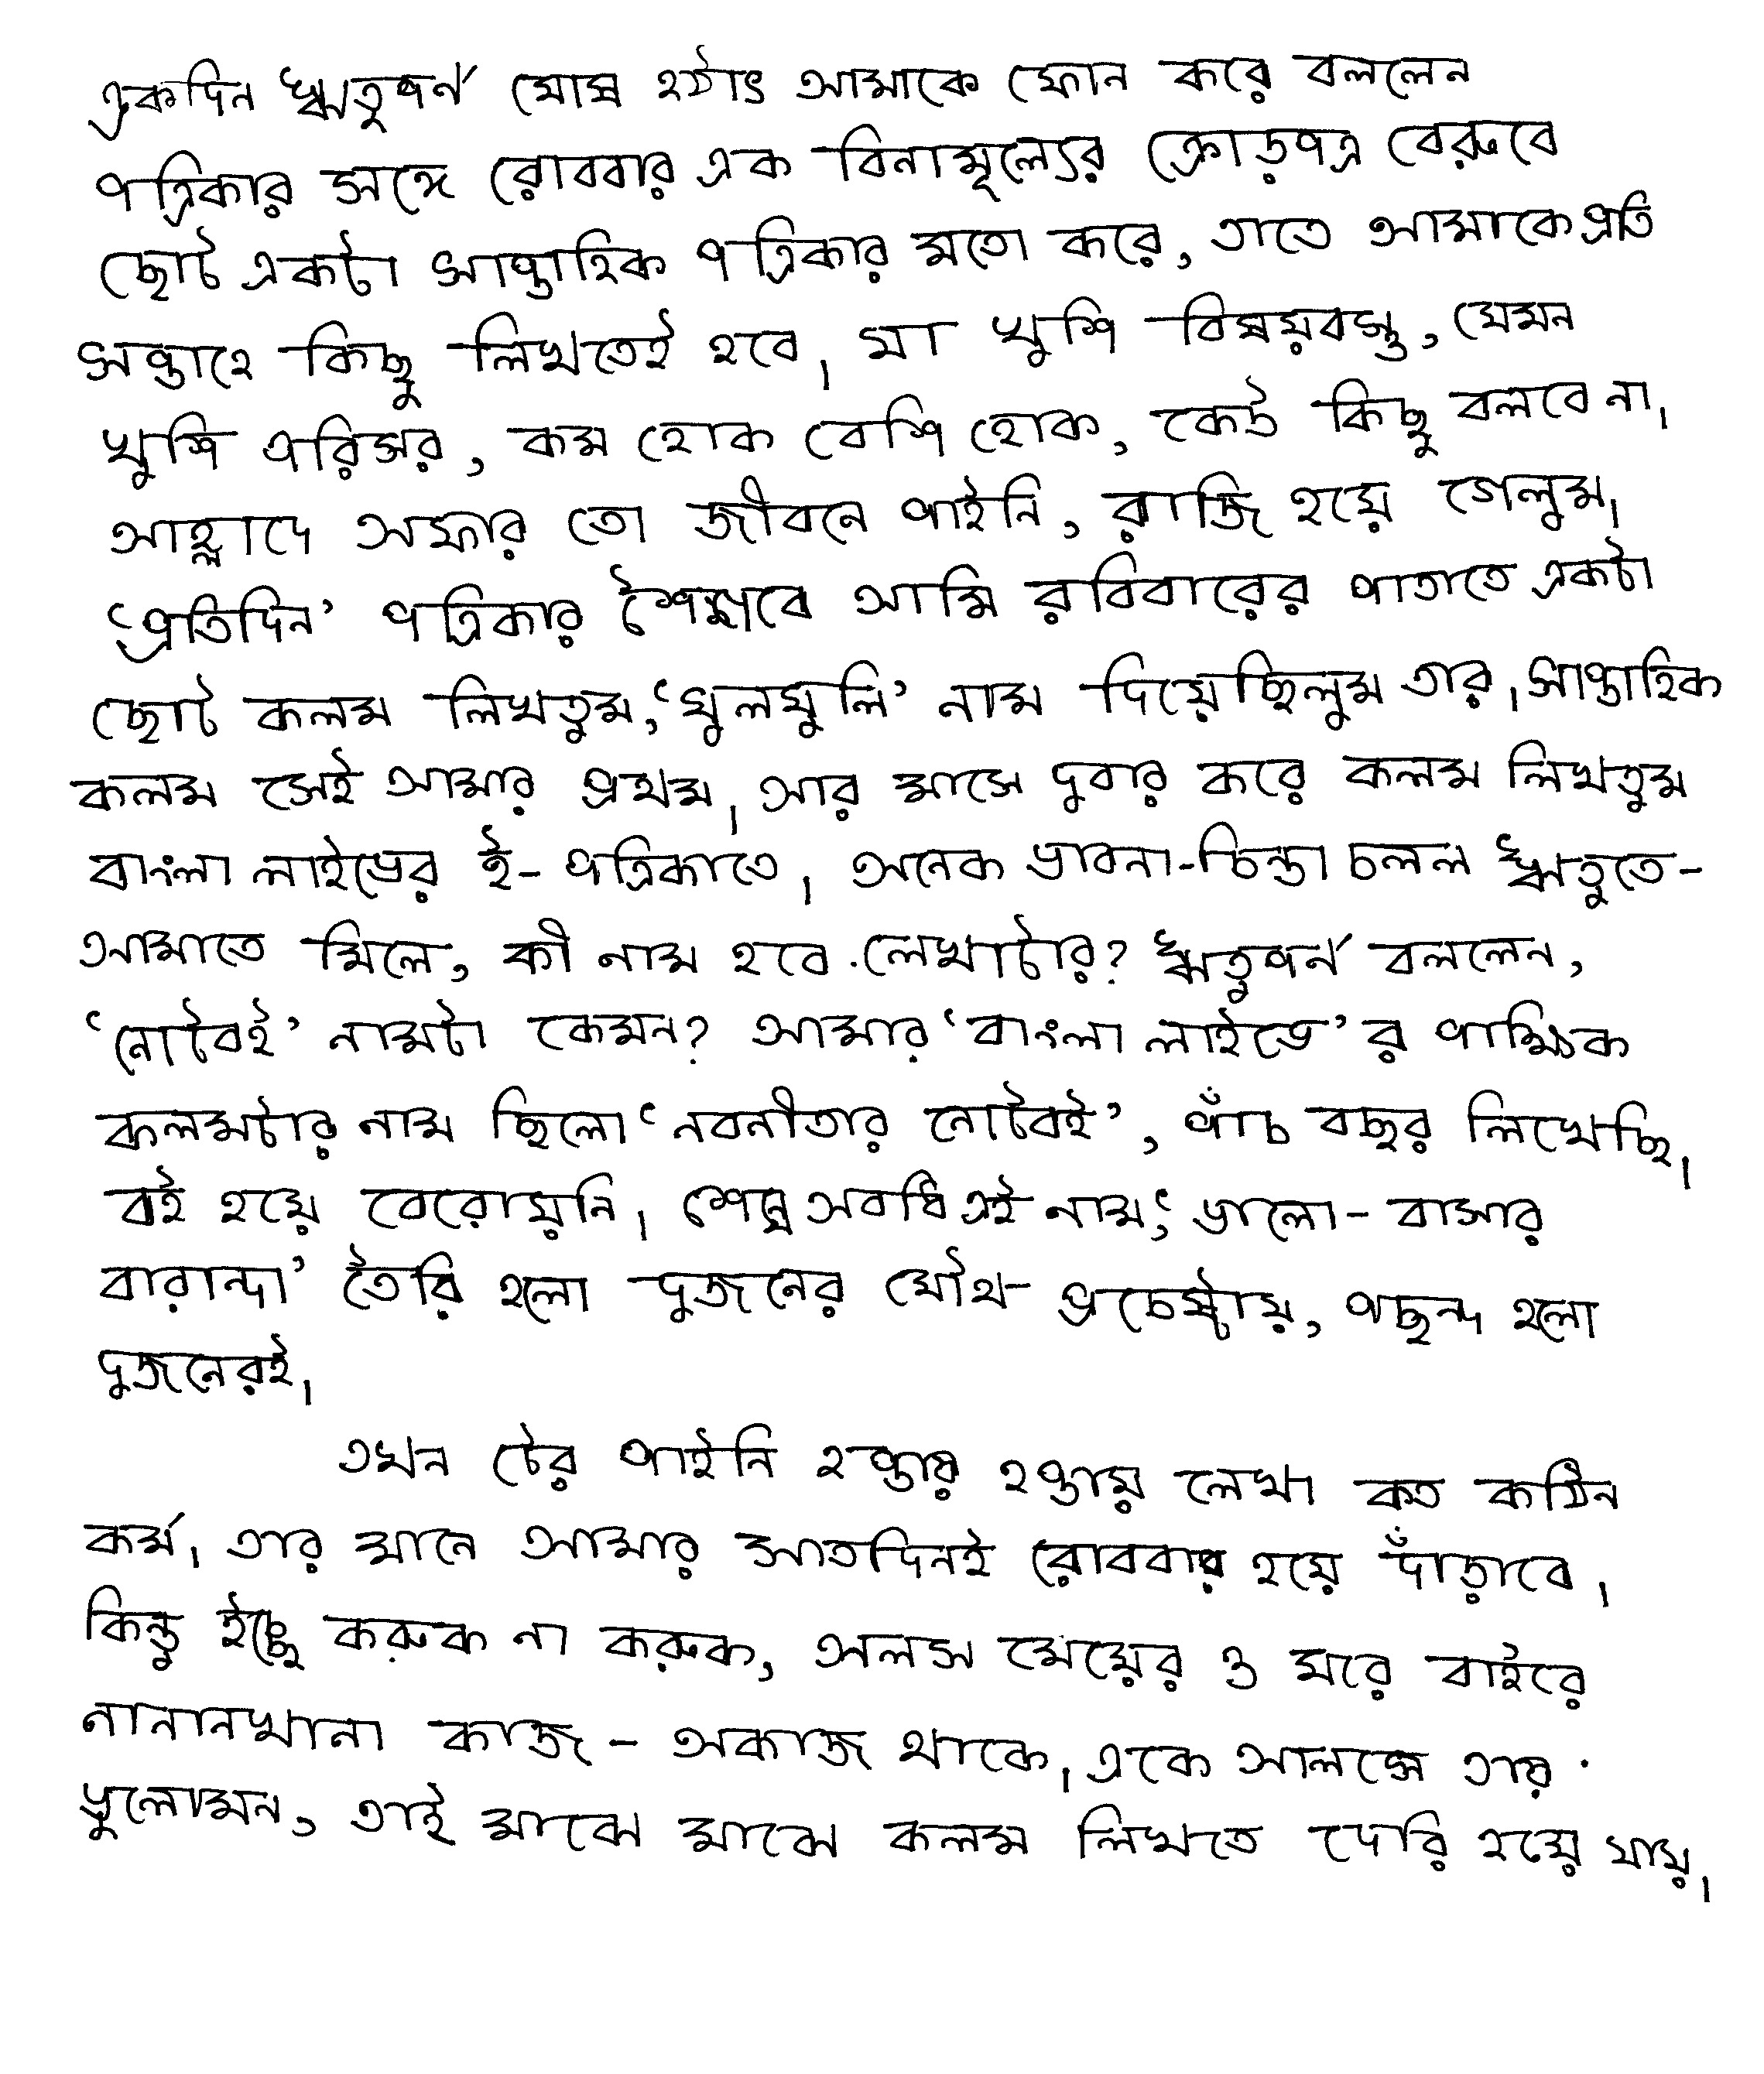 একদিন ঋতুপর্ণ ঘোষ হঠাৎ আমাকে ফোন করে বললেন
পত্রিকার সঙ্গে রোববার এক বিনামূল্যের ক্রোড়পত্র বেরুবে
ছোট একটা সাপ্তাহিক পত্রিকার মতো করে, তাতে আমাকে প্রতি
সপ্তাহে কিছু লিখতেই হবে। যা খুশি বিষয়বস্তু, যেমন
খুশি পরিসর, কম হোক বেশি হোক, কেউ কিছু বলবে না।
আহ্লাদে অফার তো জীবনে পাইনি, রাজি হয়ে গেলুম।
‘প্রতিদিন’ পত্রিকার শৈশবে আমি রবিবারের পাতাতে একটা
ছোট কলম লিখতুম, ‘ঘুলঘুলি’ নাম দিয়েছিলুম তার। সাপ্তাহিক
কলম সেই আমার প্রথম। আর মাসে দুবার করে কলম লিখতুম
বাংলা লাইভের ই- পত্রিকাতে। অনেক ভাবনা-চিন্তা চলল ঋতুতে-
আমাতে মিলে, কী নাম হবে লেখাটার? ঋতুপর্ণ বললেন,
‘নোটবই’ নামটা কেমন? আমার ‘বাংলা লাইভে’র পাক্ষিক
কলমটার নাম ছিলো ‘নবনীতার নোটবই’, পাঁচ বছর লিখেছি।
বই হয়ে বেরোয়নি। শেষ অবধি এই নাম, ‘ভালো- বাসার
বারান্দা’ তৈরি হলো দুজনের যৌথ- প্রচেষ্টায়, পছন্দ হলো
দুজনেরই।
তখন টের পাইনি হপ্তায় হপ্তায় লেখা কত কঠিন
কর্ম। তার মানে আমার সাতদিনই রোববার হয়ে দাঁড়াবে।
কিন্তু ইচ্ছে করুক না করুক, অলস মেয়ের ও ঘরে বাইরে
নানানখানা কাজ - অকাজ থাকে। একে আলসে তায়
ভুলোমন, তাই মাঝে মাঝে কলম লিখতে দেরি হয়ে যায়।